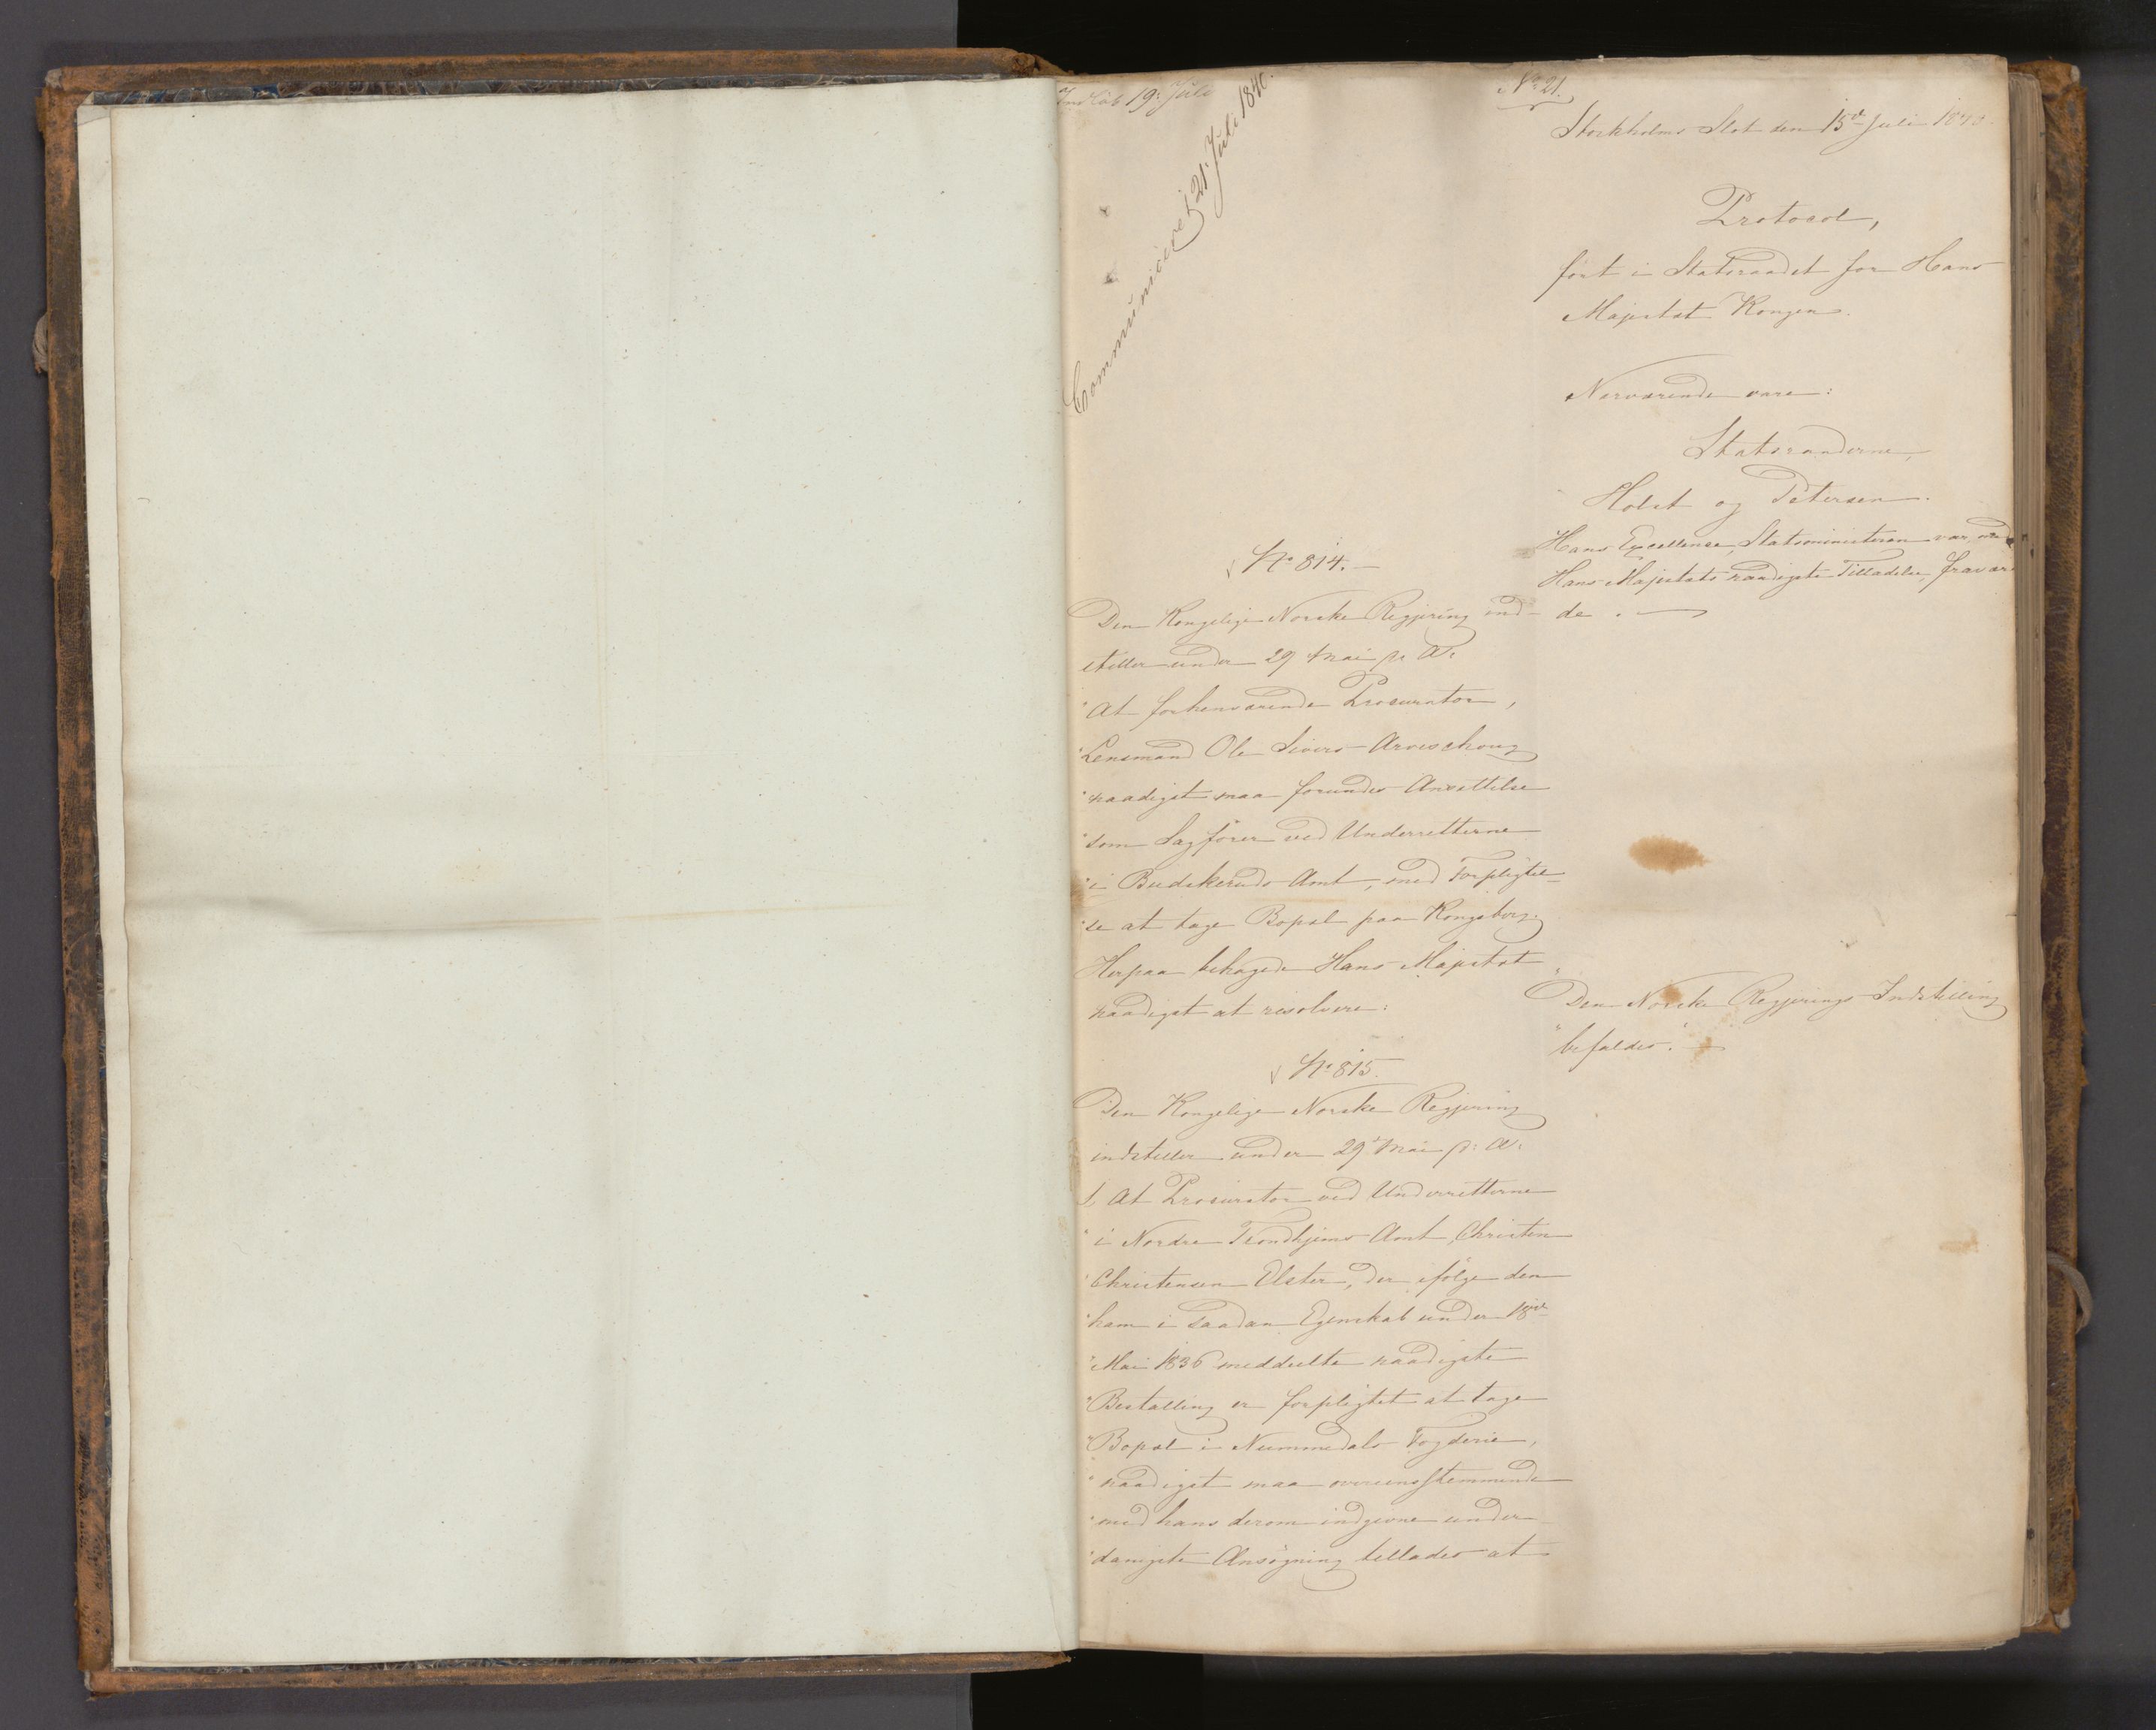 Indløb 19: Juli
Communiceret 21. Juli 1840.
No 21.
Stockholms Slot den 15de Juli 1840.
Protocol,
ført i Statsraadet for Hans
Majestæt Kongen.
Nærværende vare:
Statsraaderne,
Holst og Petersen.
Hans Excellence, Statsministeren var, med
Hans Majestæts naadigste Tilladelse, fraværen
de.
No 814.
Den Kongelige Norske Regjering ind-
stiller under 29 Mai p. A:
"At forhenværende Procurator,
"Lensmand Ole Sivers
"naadigst maa forundes Ansættelse
"som Sagfører ved Underretterne
"i Buskeruds Amt, med Forpligtel-
"se at tage Bopæl paa Kongsberg.
Herpaa behagede Hans Majestæt
naadigst at resolvere:
"Den Norske Regjerings Indstilling
"bifaldes."
No 815.
Den Kongelige Norske Regjering
indstiller under 29 Mai p: A:
1, At Procurator ved Underretterne
"i Nordre Trondhjems Amt, Christen
"Christensen Elster, der ifølge den
"ham i saadan Egenskab under 18de
"Mai 1836 meddeelte naadigste
"Bestalling er forpligtet at tage
"Bopæl i Nummedals Fogderie,
"naadigst maa overeensstemmende
"med hans derom indgivne under-
"danigste Ansøgning tillades at